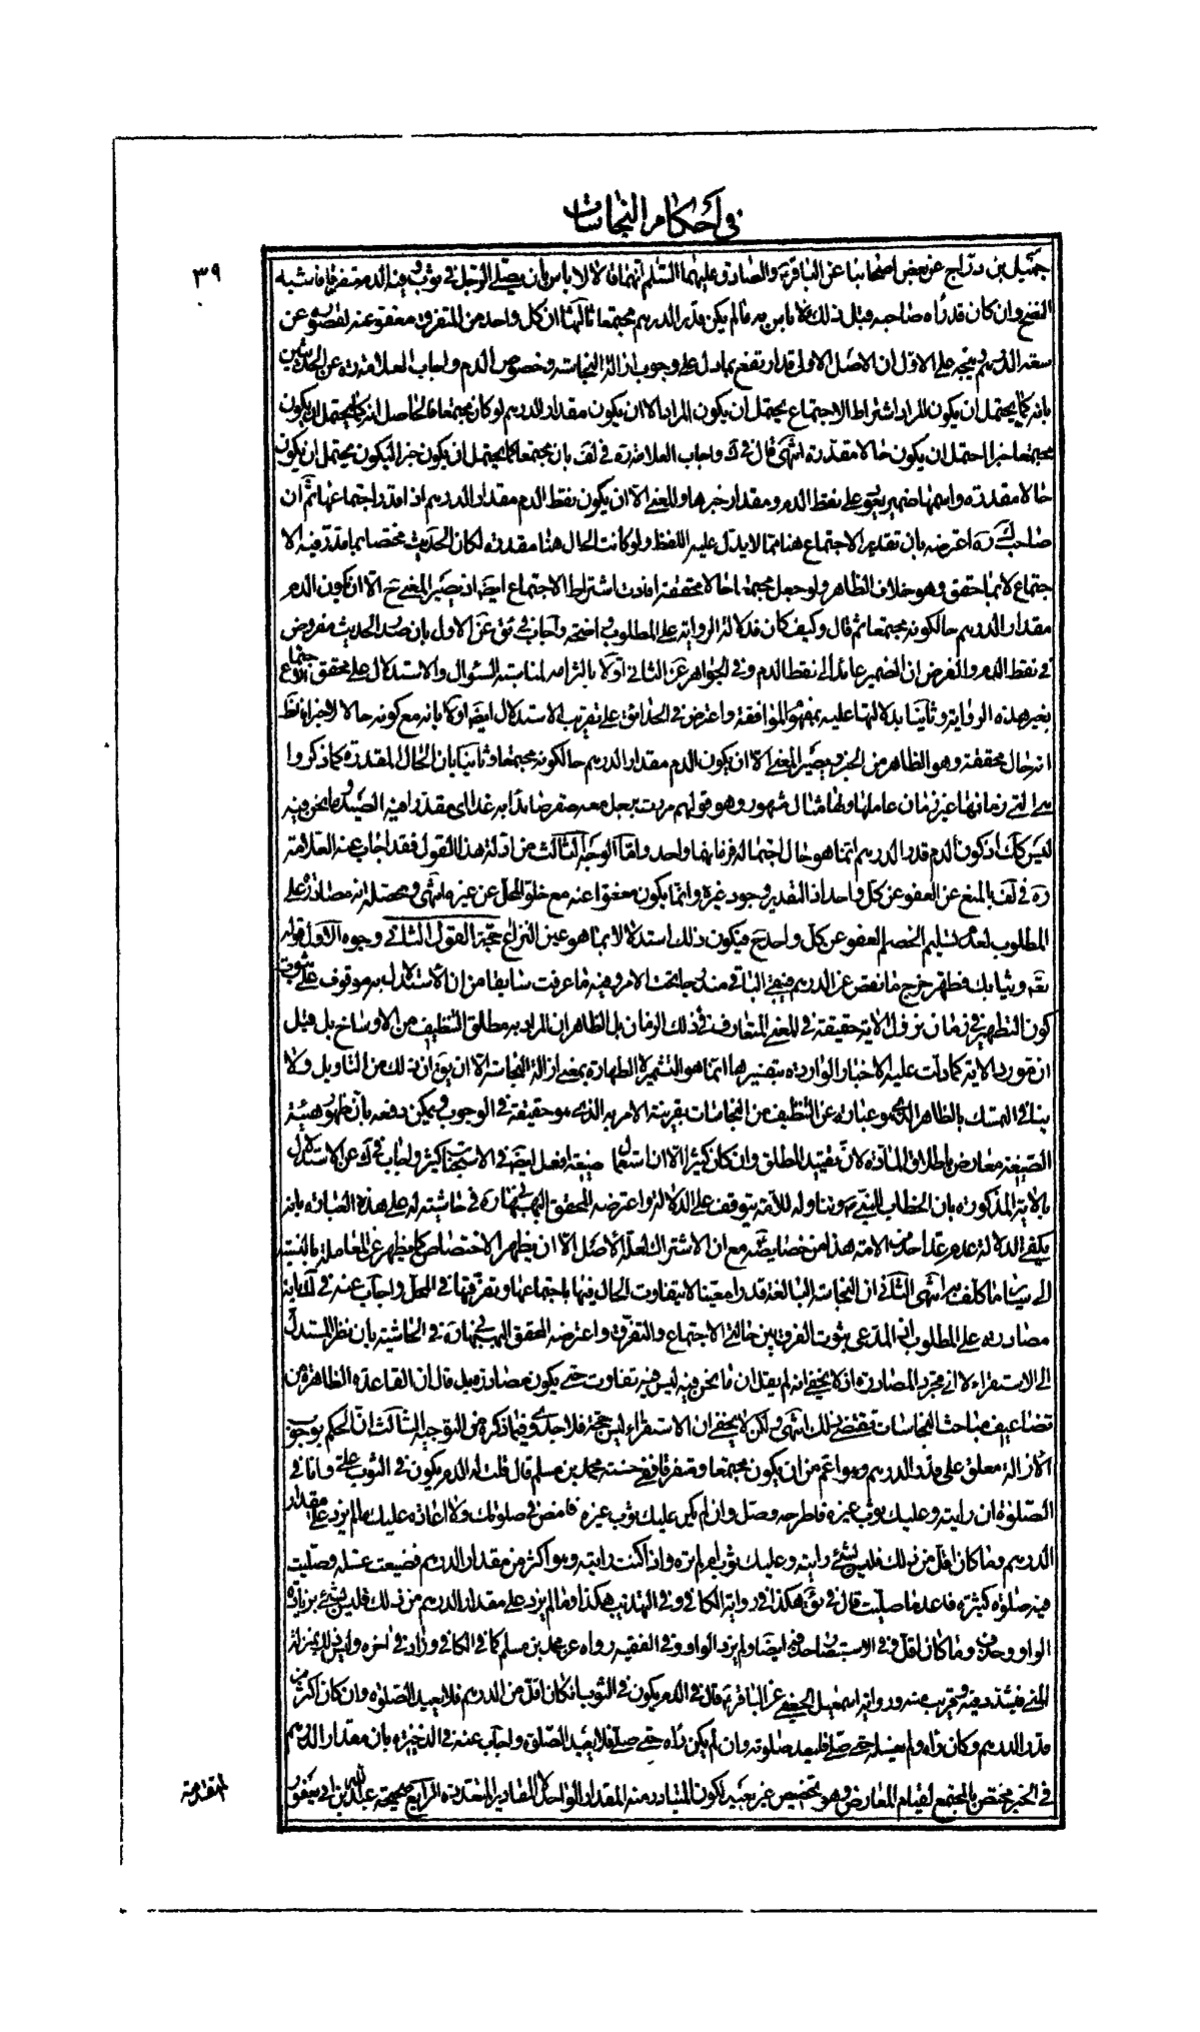 في أحكام النجاسات
٣٩
جميل بن دراج عن بعض اصحابنا عن الباقر والصادق عليهما السلام انهما قالا لا باس بان يصلي الرجل في ثوب وفيه الدم متفرقا شبه
النضح وان كان قد رآه صاحبه قبل ذلك فلا باس به ما لم يكن قدر الدرهم مجتمعا ثالثها ان كل واحد من المتفرق معفو عنه لقصوره عن
سعة الدرهم ويتجه على الاول ان الاصل الاولى قد ارتفع بما دل على وجوب ازالة النجاسة وخصوص الدم واجاب العلامة ره عن الحديثين
بانه كما يحتمل ان يكون المراد اشتراط الاجتماع يحتمل ان يكون المراد الا ان يكون مقدار الدرهم لو كان مجتمعا فالحاصل انه كما يحتمل ان يكون
مجتمعا خبرا احتمل ان يكون حالا مقدرة انتهى قال في ك واجاب العلامة ره في لف بان مجتمعا كما يحتمل ان يكون خبرا ليكون يحتمل ان يكون
حالا مقدرة واسمها ضمير يعود على نقط الدم ومقدار خبرها والمعنى الا ان يكون نقط الدم مقدار الدرهم اذا قدر اجتماعها ثم ان
صاحب ره اعترضه بان تقدير الاجتماع هنا مما لا يدل عليه اللفظ ولو كانت الحال هنا مقدرة لكان الحديث مختصا بما قدر فيه الا
جتماع لا بما حقق وهو خلاف الظاهر ولو جعل مجتمعا حالا محققة افادت اشتراط الاجتماع ايضا اذ يصير المعنى ح الا ان يكون الدم
مقدار الدرهم حالكونه مجتمعا ثم قال وكيف كان فدلالة الرواية على المطلوب واضحة واجاب في ئق عن الاول بان صدر الحديث مفروض
في نقط الدم والفرض ان الضمير عائد الى نقط الدم وفي الجواهر عن الثاني اولا بالتزامه لمناسبته السؤال والاستدلال على محقق الاجتماع
بغير هذه الرواية وثانيا بدلالتها عليه بمفهوم الموافقة واعترض في الحدائق على تقريب الاستدلال ايضا اولا بانه مع كونه حالا لا خبرا فالظ
انه حال محققة وهو الظاهر من الخبر ويصير المعنى الا ان يكون الدم مقدار الدرهم حالكونه مجتمعا وثانيا بان الحال المقدرة كما ذكروا
هي التي زمانها غير زمان عاملها ولها مثال مشهور وهو قولهم مررت برجل معه صقر صائدا به غدا اي مقدرا فيه الصيد وما نحن فيه
ليس كك اذ كون الدم قدر الدرهم انما هو حال اجتماله فزمانهما واحد واما الوجه الثالث من ادلة هذا القول فقد اجاب عنه العلامة
ره في لف بالمنع عن العفو عن كل واحد اذ التقدير وجود غيره وانما يكون معفوا عنه مع خلو المحل عن غيره انتهى ومحصله انه مصادرة على
المطلوب لعدم تسليم الخصم العفو عن كل واحد ح فيكون ذلك استدلالا بما هو عين النزاع حجة القول الثاني وجوه الاول قوله
تعه وثيابك فطهر خرج ما نقص عن الدرهم فيبقى الباقي مندرجا تحت الامر وفيه ما عرفت سابقا من ان الاستدلال به موقوف على ثبوت
كون التطهير في زمان نزول الاية حقيقة في المعنى المتعارف في ذلك الزمان بل الظاهر ان المراد به مطلق التنظيف من الاوساخ بل قيل
ان مورد الاية كما دلت عليه الاخبار الواردة بتفسيرها انما هو التشمير لا الطهارة بمعنى ازالة النجاسة الا ان يق ان ذلك من التاويل ولا
ينافي التمسك بالظاهر الذي هو عبارة عن التنظيف من النجاسات بقرينة الامر به الذي هو حقيقة في الوجوب ويمكن دفعه بان ظهور هيئة
الصيغة معارض باطلاق المادة لان تقييد المطلق وان كان كثيرا الا ان استعمال صيغة افعل ايضا في الاستحباب كثير واجاب في ك عن الاستدلال
بالاية المذكورة بان الخطاب للنبي ص وتناوله للامة يتوقف على الدلالة واعترضه المحقق البهبهاني ره في حاشيته له على هذه العبارة بانه
يكفي الدلالة عدم عد احد من الامة هذا من خصايصه مع ان الاشتراك لعله الاصل الا ان يظهر الاختصاص كما يظهر عن المعاملة بالنسبة
الى سائر ما كلف به انتهى الثاني ان النجاسة البالغة قدرا معينا لا يتفاوت الحال فيها باجتماعها وتفرقها في المحل واجاب عنه في ك بانه
مصادرة على المطلوب اذ المدعي ثبوت الفرق بين حالتي الاجتماع والتفرق واعترضه المحقق البهبهاني ره في الحاشية بان نظر المستدل
الى الاستقراء لا انه مجرد المصادرة اذ لا يخفى انه لم يقل ان ما نحن فيه ليس فيه تفاوت حتى يكون مصادرة بل قال ان القاعدة الظاهرة من
تضاعيف مباحث النجاسات تقتضي ذلك انتهى ولكن لا يخفى ان الاستقراء ليس حجة فلا جدوى فيما ذكره من التوجيه الثالث ان الحكم بوجوب
الازالة معلق على قدر الدرهم وهو اعم من ان يكون مجتمعا ومتفرقا ففي حسنة محمد بن مسلم قال قلت له الدم يكون في الثوب علي وانا في
الصلوة ان رايته وعليك ثوب غيره فاطرحه وصل وان لم يكن عليك ثوب غيره فامض في صلوتك ولا اعادة عليك ما لم يزد على مقدار
الدرهم وما كان اقل من ذلك فليس بشئ رايته وعليك ثوب او لم تره واذا كنت رايته وهو اكثر من مقدار الدرهم فضيعت غسله وصليت
فيه صلوة كثيرة فاعد ما صليت قال في ئق هكذا في رواية الكافي وفي التهذيب هكذا وما لم يزد على مقدار الدرهم من ذلك فليس بشئ بزيادة
الواو وحذف وما كان اقل وفي الاستبصار حذفه ايضا ولم يزد الواو وفي الفقيه رواه عن محمد بن مسلم كما في الكافي وزاد في اخره وليس ذلك بمنزلة
المني فيشدد فيه وقريب منه رواية اسمعيل الجعفي عن الباقر ع قال في الدم يكون في الثوب ان كان اقل من الدرهم فلا يعيد الصلوة وان كان اكثر من
قدر الدرهم وكان رآه ولم يغسله حتى صلى فليعد صلوته وان لم يكن رآه حتى صلى فلا يعيد الصلوة واجاب عنه في الذخيرة بان مقدار الدرهم
في الخبر مختص بالمجتمع لقيام المعارض وهو تخصيص غير بعيد لكون المتبادر منه المقدار الواحد لا المقادير المتعددة الرابع صحيحة عبد الله بن ابي يعفور
المتقدمة